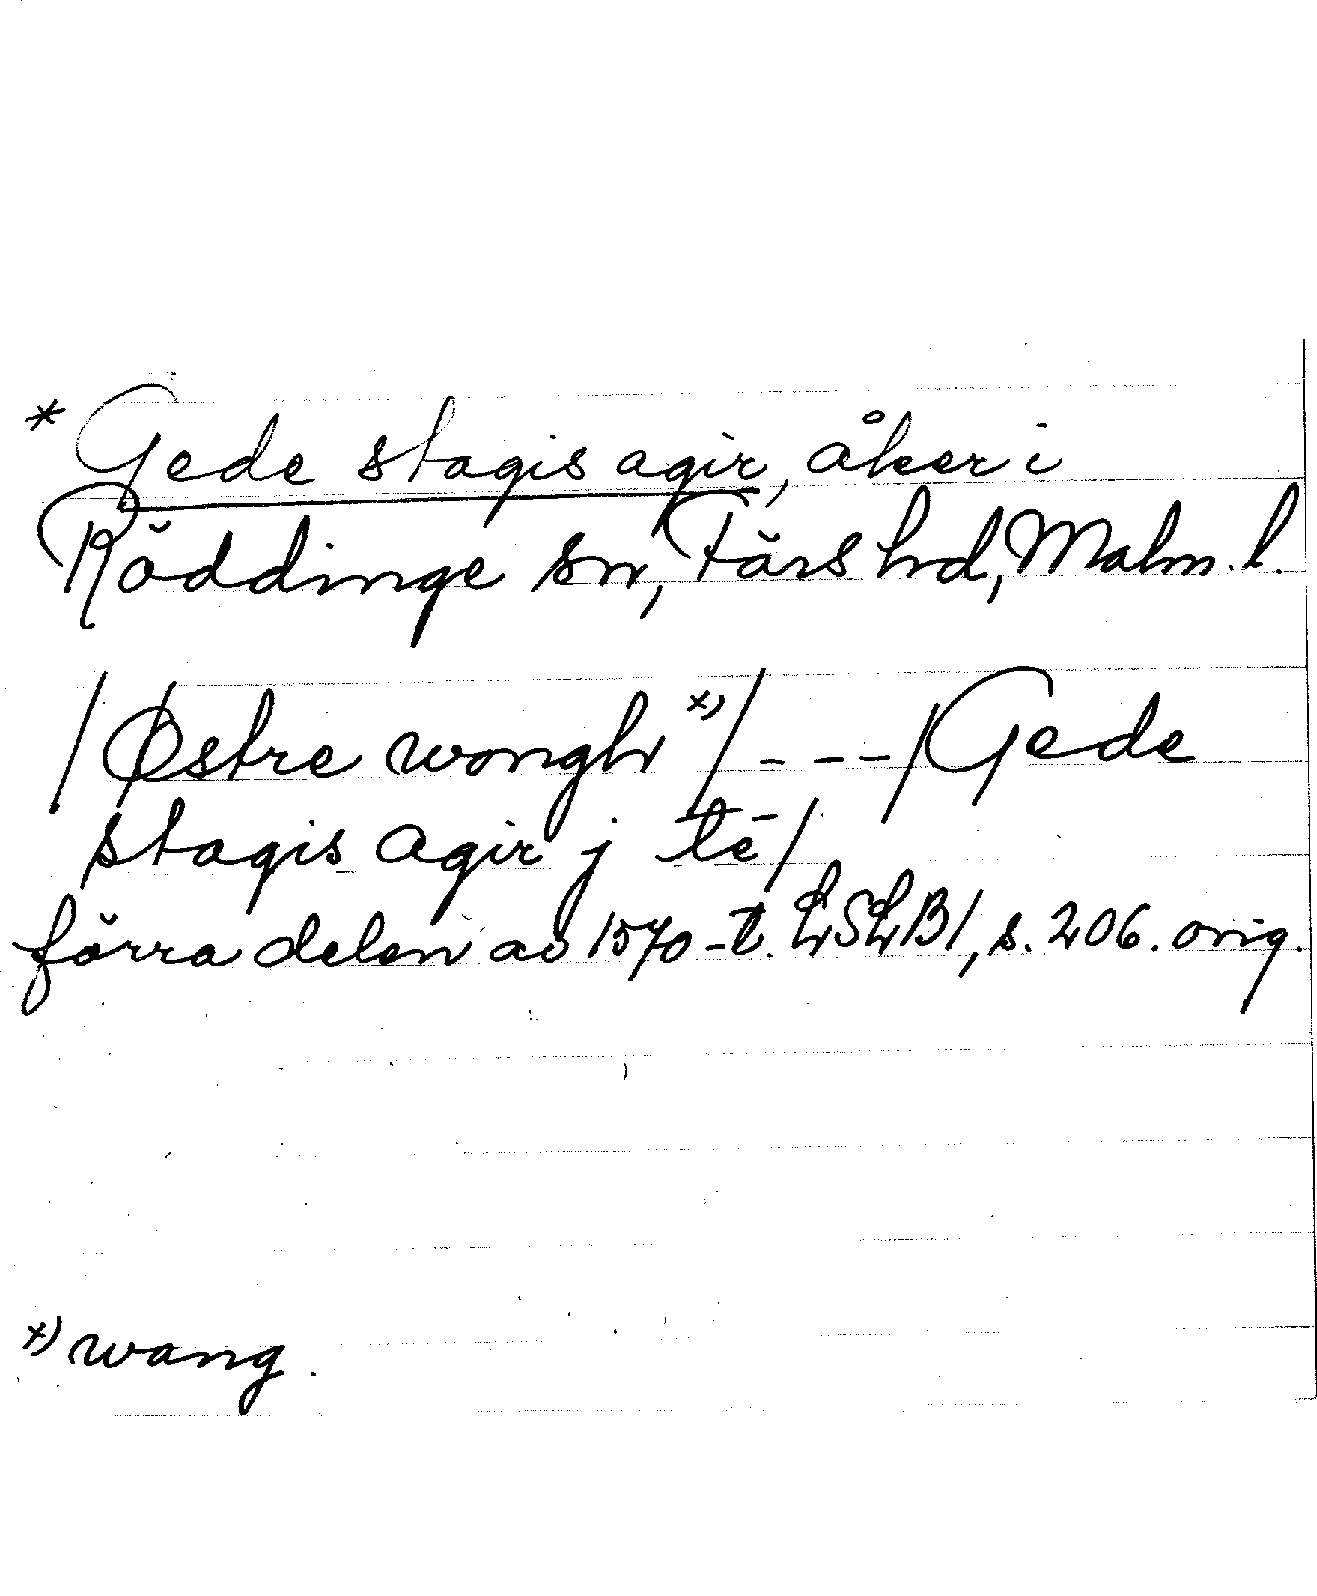 * Gede stagis agir, åker i
Röddinge sn, Färs hd, Malm. l.
/Østre wongh x)/ - - - /Gede
stagis agir j tē/
förra delen av 1570-t. LSLB1, s. 206. orig.
x) wang.